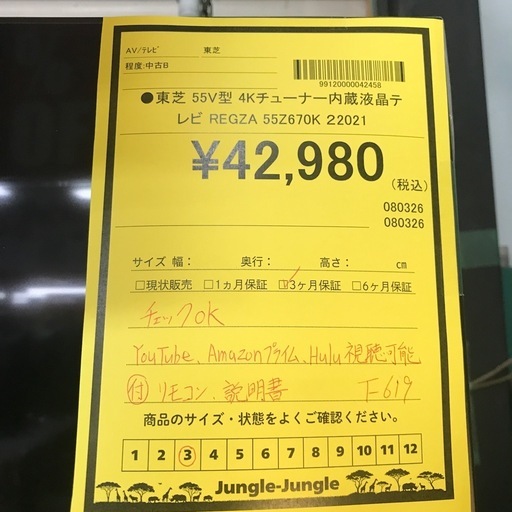 AV/ﾃﾚﾋﾞ 東芝
程度:中古B
99120000042458
●東芝 55V型 4Kチューナー内蔵液晶テ
レビ REGZA 55Z670K 22021
¥42,980
(税込)
080326
080326
サイズ 幅: 奥行: 高さ: cm
□現状販売 □1ヵ月保証 □3ヶ月保証 □6ヶ月保証
チェックOK
YouTube、Amazonプライム、Hulu視聴可能
付 リモコン、説明書 F-619
商品のサイズ・状態をよくご確認ください。
1 2 3 4 5 6 7 8 9 10 11 12
Jungle-Jungle